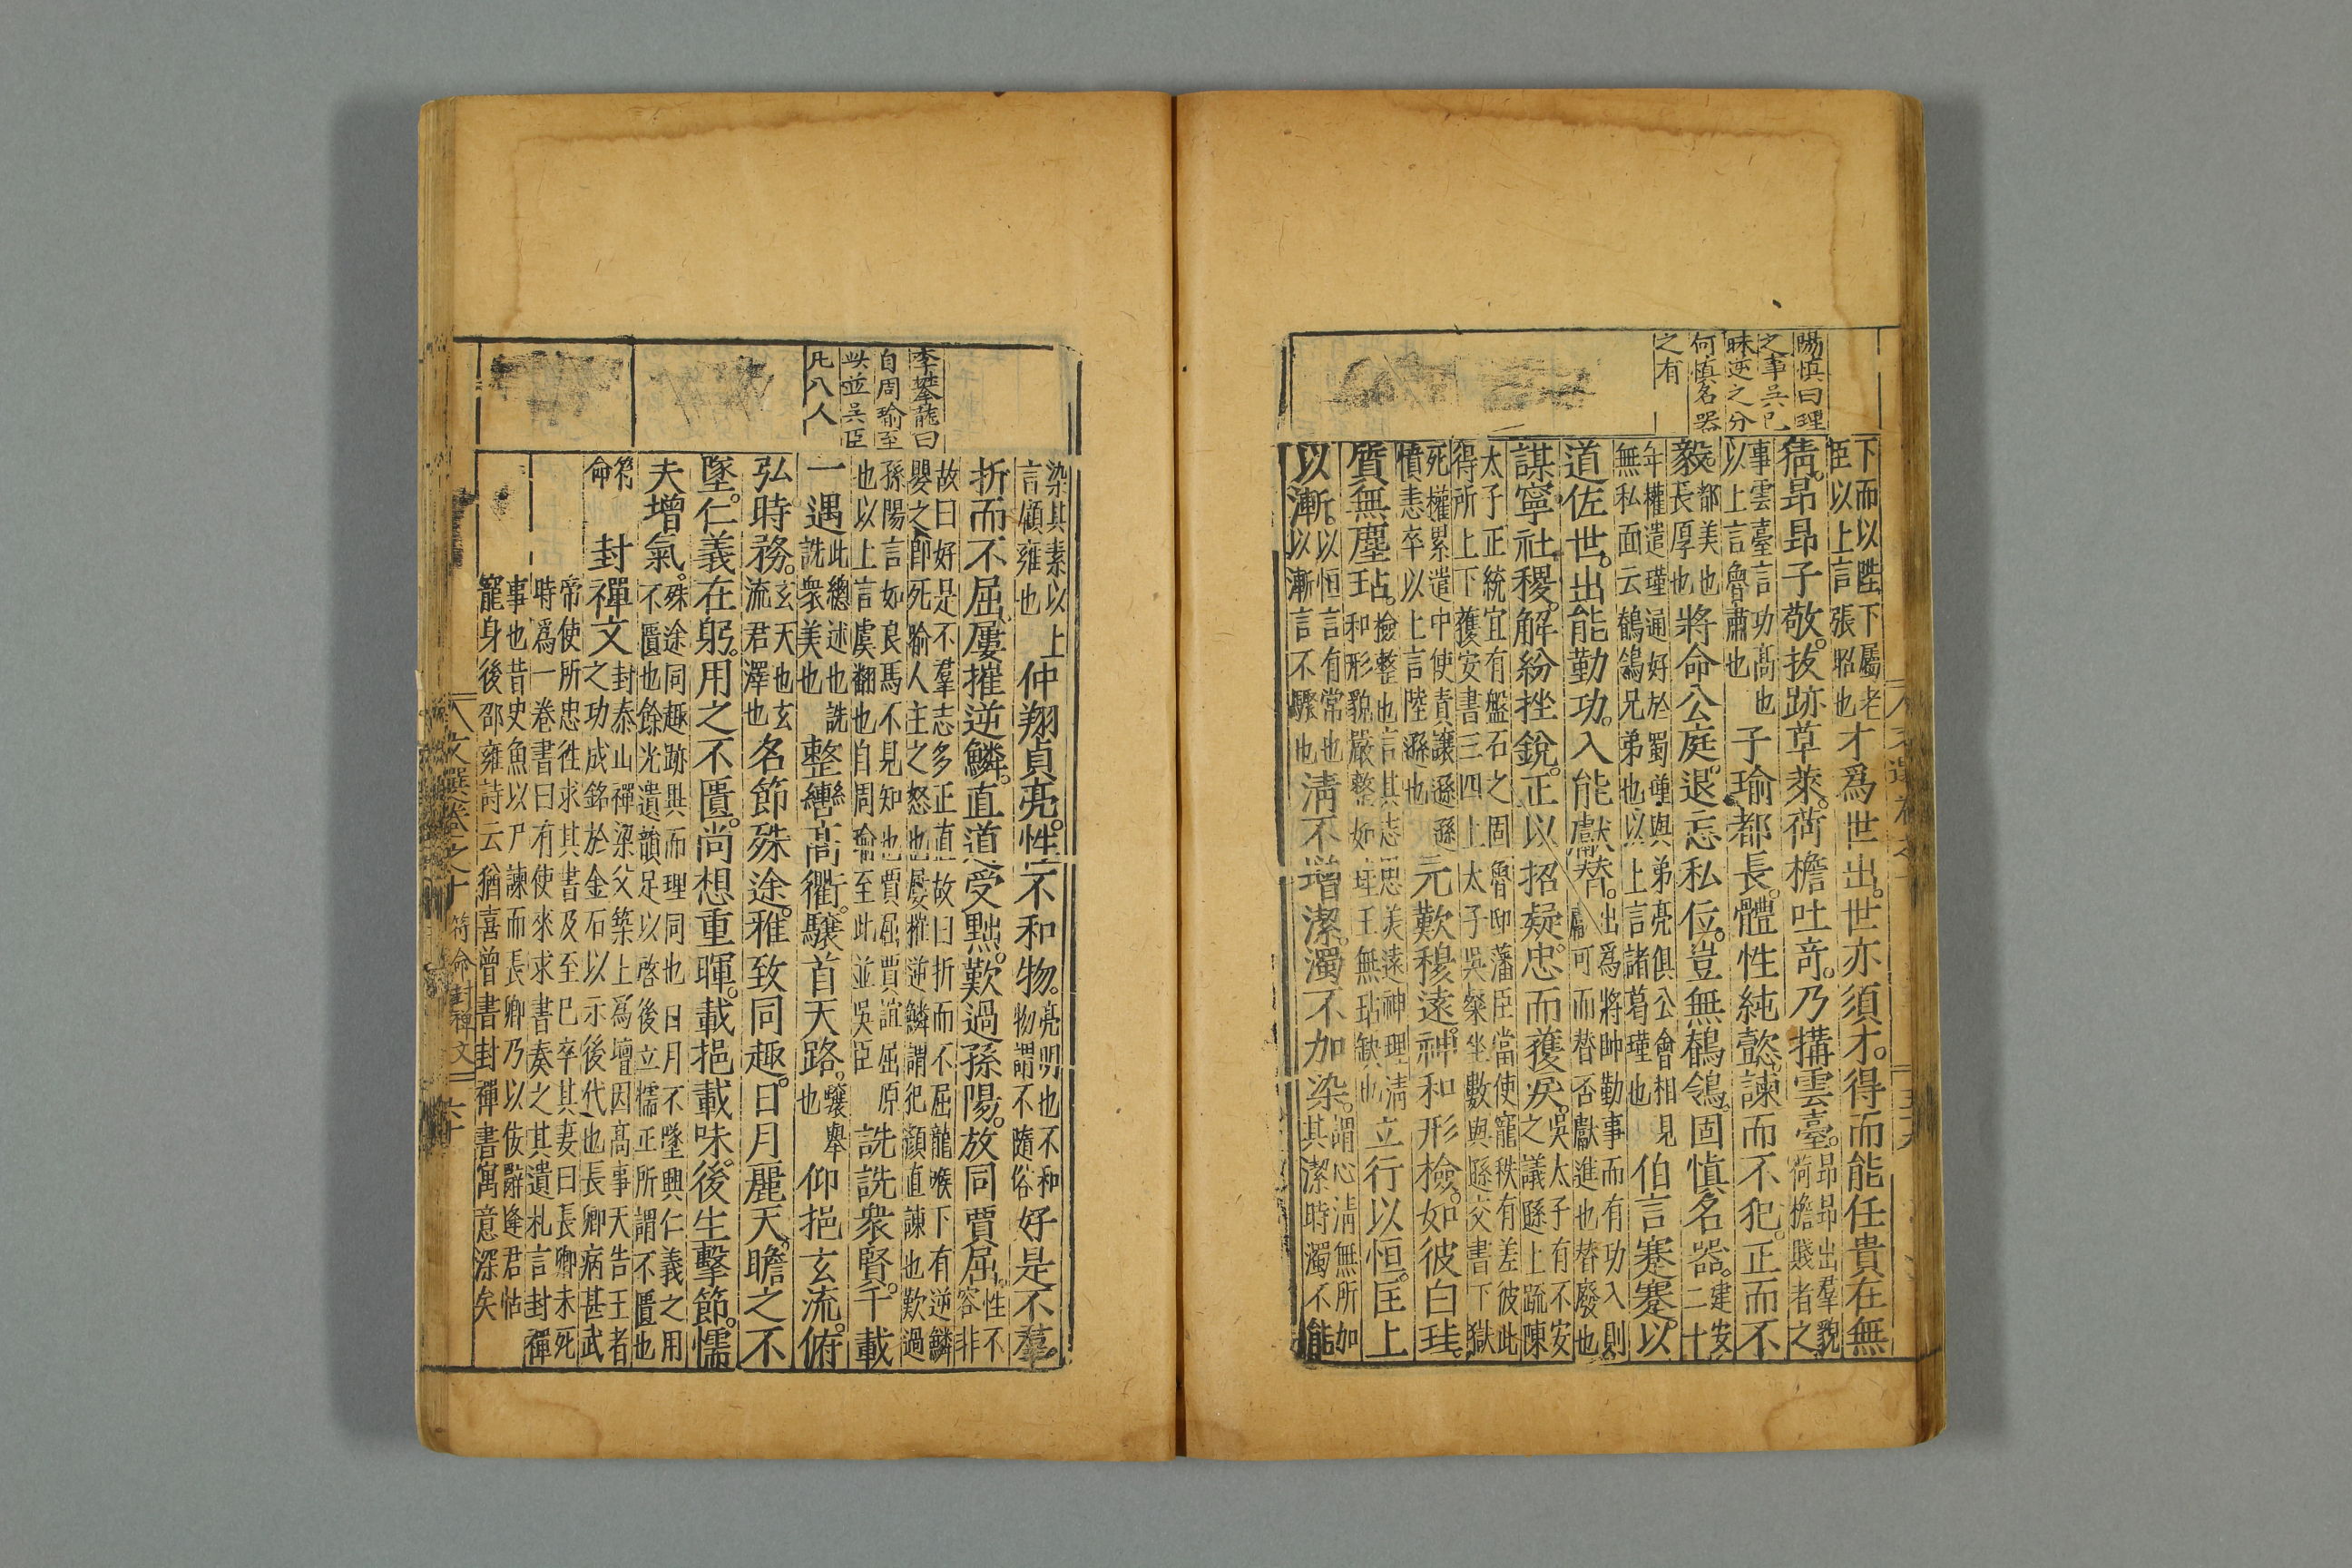 陽慎曰理
之事吳已
昧逆之分
何慎名器
之有
下而以陞下屬老
臣以上言張昭也
才爲世出。世亦須才。得而能任貴在無
猜。昂昂子敬。拔跡草萊。荷檐吐奇。乃搆雲臺。
昂昂出羣貌
荷檐賤者之
事雲臺言功髙也
以上言魯肅也
子瑜都長。體性純懿。諫而不犯。正而不
毅。
都美也
長厚也
將命公庭。退忘私位。豈無鶺鴒。固慎名器。
建安二十
年權遣瑾通好於蜀瑾與弟亮俱公會相見
無私面云鶺鴒兄弟也以上言諸葛瑾也
伯言蹇蹇。以
道佐世。出能勤功。入能獻替。
出爲將帥勤事而有功入則
可而替否獻進也替廢也
謀寧社稷。解紛挫銳。正以招疑。忠而獲戾。
吳太子有不安
之議遜上疏陳
太子正統宜有盤石之固魯邸藩臣當使寵秩有差彼此
得所上下獲安書三四上太子吳粲坐數與遜交書下獄
死權累遣中使責讓遜遜
憤恚卒以上言陸遜也
元歎穆遠。神和形檢。如彼白珪。
質無塵玷。
檢整也言其志思美遠神理淸
和形貌嚴整如珪玉無玷缺也
立行以恒。匡上
以漸。
以恒言有常也
以漸言不驟也
淸不增潔。濁不加染。
謂心淸無所加
其潔時濁不能
李攀龍曰
自周瑜至
此並吳臣
凡八人
染其素以上
言顧雍也
仲翔貞亮。性不和物。
亮明也不和
物謂不隨俗
好是不羣。
折而不屈。屢摧逆鱗。直道受黜。歎過孫陽。放同賈屈。
性不
容非
故曰好是不羣志多正直故曰折而不屈龍喉下有逆鱗
嬰之卽死喻人主之怒也屢摧逆鱗謂犯顏直諫也歎過
孫陽言如良馬不見知也賈屈賈誼屈原
也以上言虞翻也自周瑜至此並吳臣
詵詵衆賢。千載
一遇
此總述也詵
詵衆美也
整轡髙衢。驤首天路。
驤舉
也
仰挹玄流。俯
弘時務。
玄天也玄
流君澤也
名節殊途。雅致同趣。日月麗天。瞻之不
墜。仁義在躬。用之不匱。尚想重暉。載挹載味。後生擊節。懦
夫增氣。
殊途同趣跡異而理同也日月不墜興仁義之用
不匱也餘光遺韻足以啓後立懦正所謂不匱也
符命
封禪文
封泰山禪梁父築上爲壇因髙事天告王者
之功成銘於金石以示後代也長卿病甚武
帝使所忠徃求其書及至已卒其妻曰長卿未死
時爲一卷書曰有使來求書奏之其遺札言封禪
事也昔史魚以尸諫而長卿乃以佞辭逢君怙
寵身後邵雍詩云猶喜曾書封禪書寓意深矣
文選卷之十 符命封禪文 六十